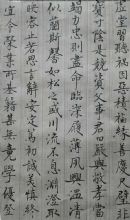 虛堂習聽禍因惡積福緣善慶尺璧
寸陰是競資父事君曰嚴與敬孝當
竭力忠則盡命臨深履薄夙興溫凊
似蘭斯馨如松之盛川流不息淵澄取
映容止若思言辭安定篤初誠美慎終
宜令榮業所基籍甚無竟學優